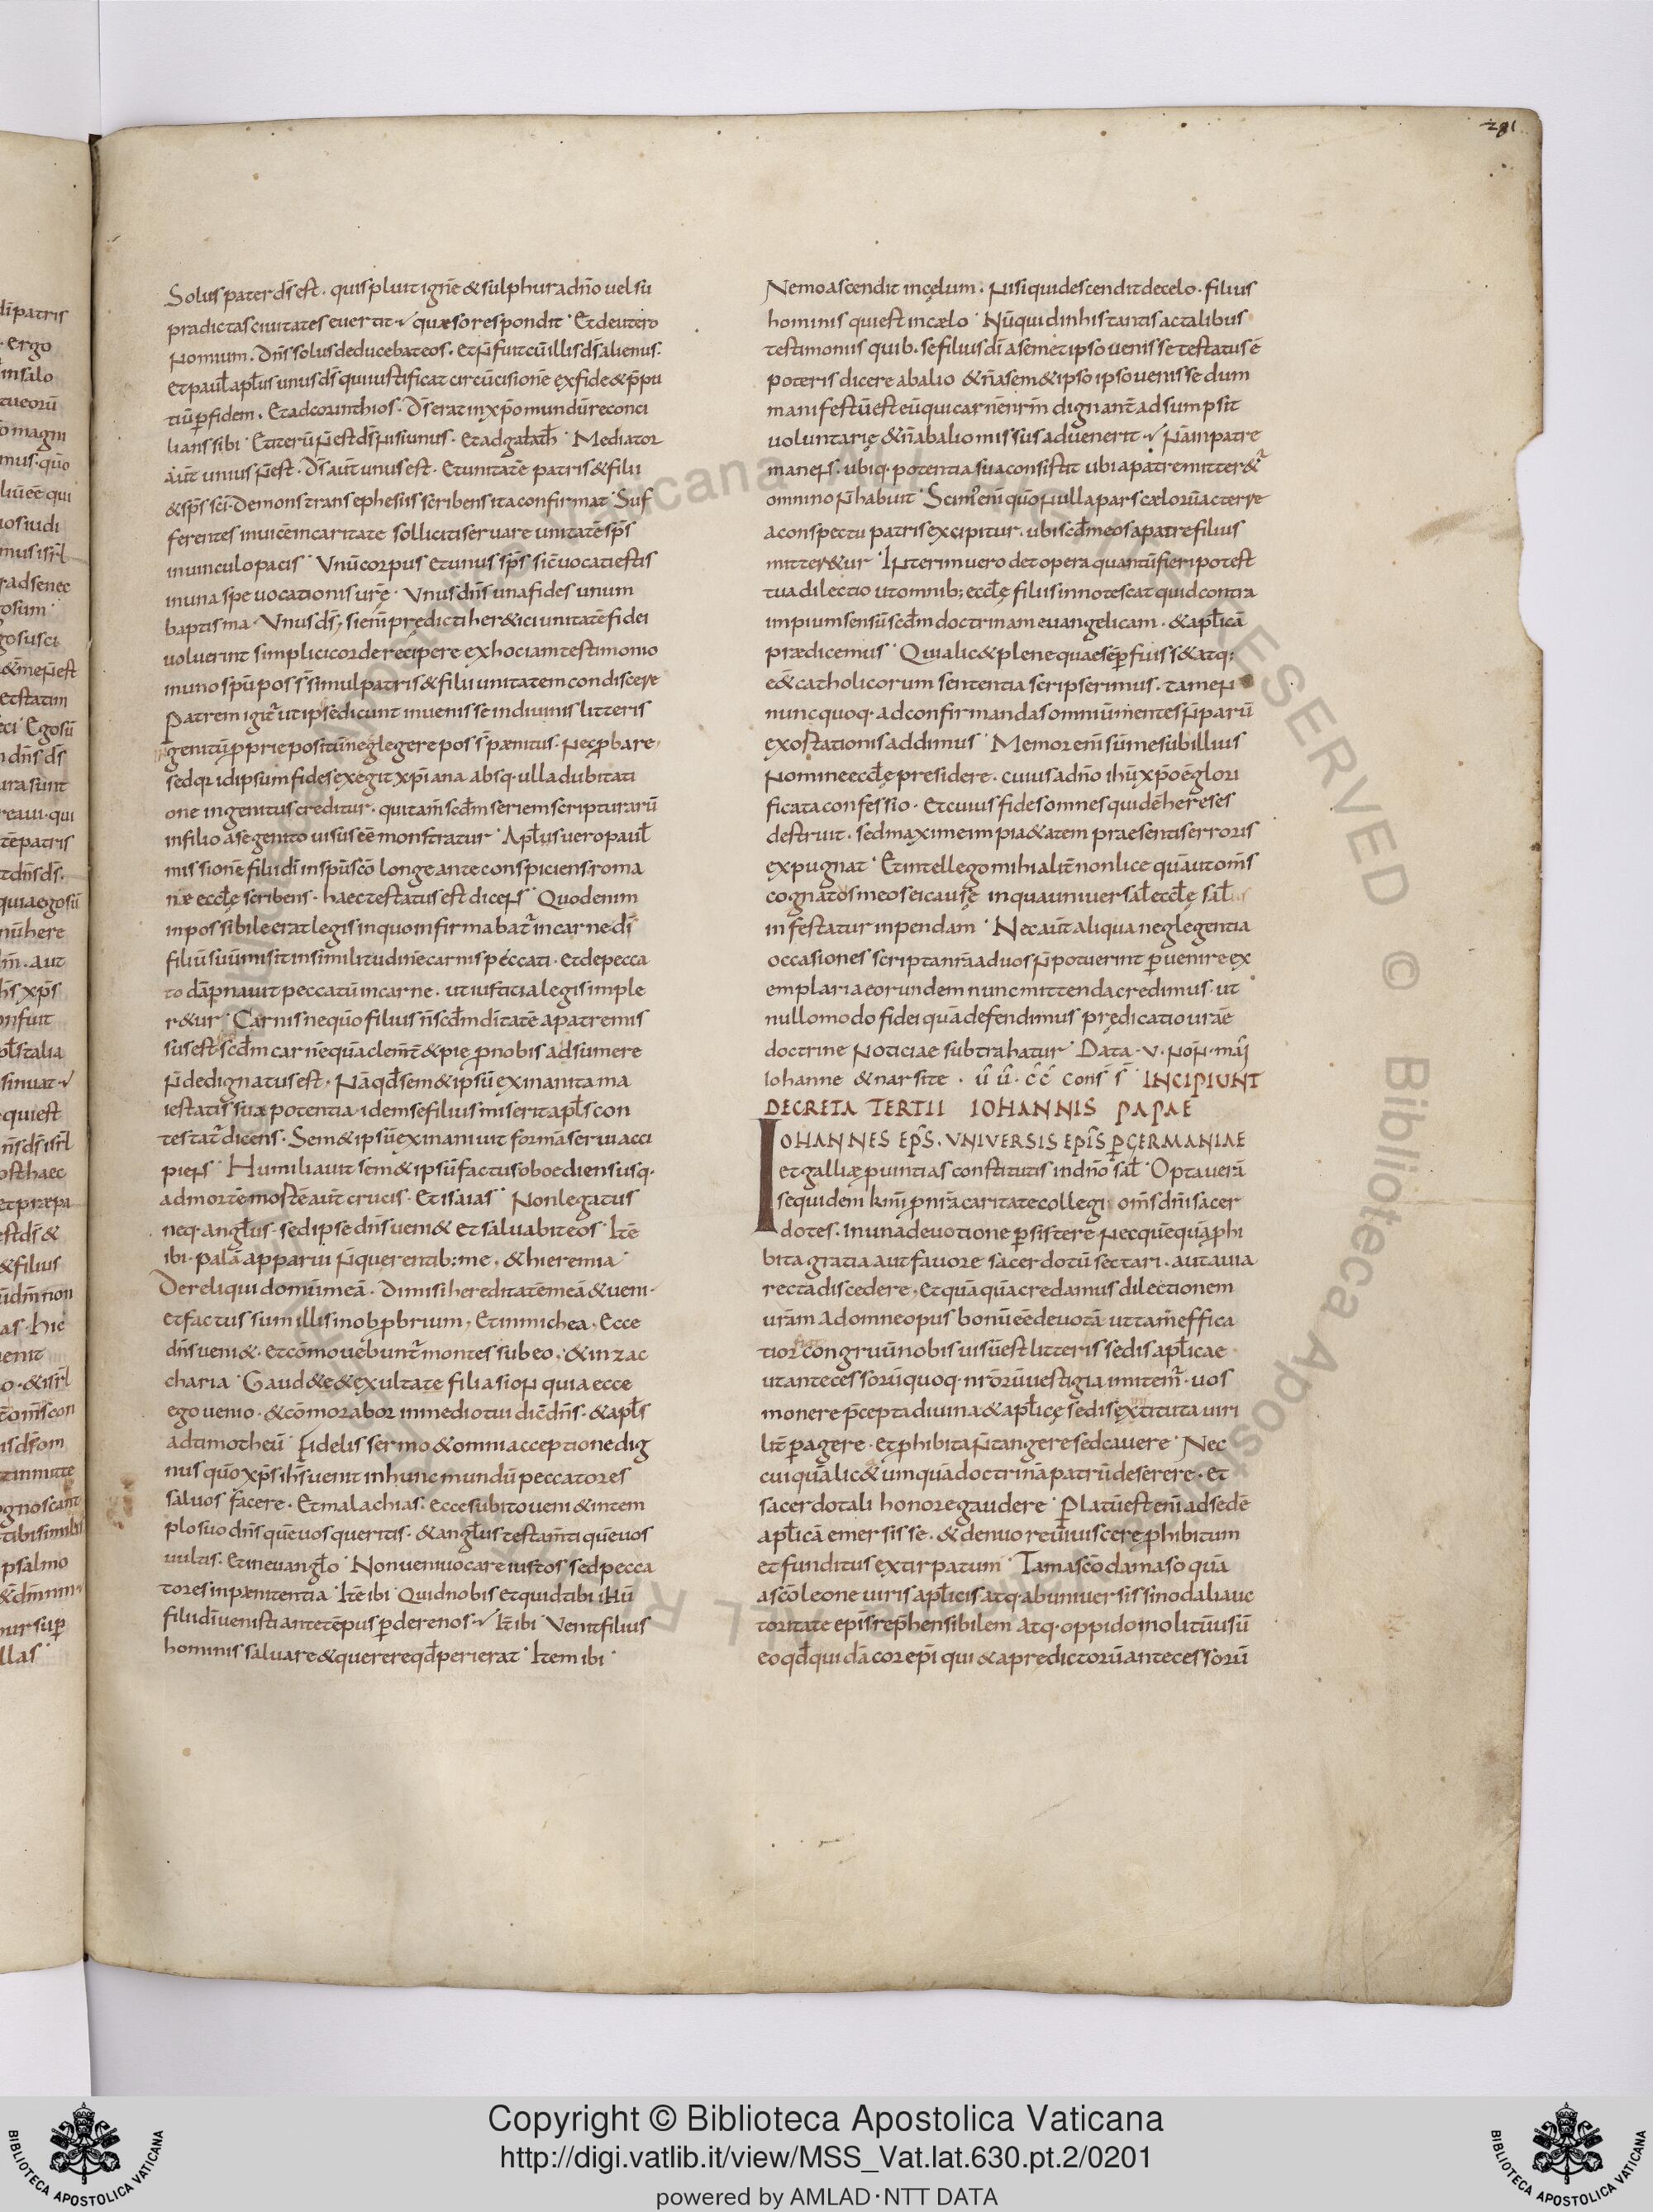 281
Solus pater ds̄ est. quis pluit igne & sulphur a dn̄o vel su
pradictas civitates evertit quæso respondit Et deutero
nomium. Dn̄s solus deducebat eos. et n̄ fuit cū illis ds̄ alienus.
et paul̄ apl̄us unus ds̄ qui iustificat circūcisionē ex fide & p̄pu
tiū p fidem. Et ad corinthios. Ds̄ erat in xp̄o mundū reconci
lians sibi Et iterū n̄ est ds̄ nisi unus. Et ad galath̄ Mediator
aūt unius n̄ est. Ds̄ aūt unus est. Et unitatē patris & filii
& sp̄s sc̄i demonstrans ephesiis scribens ita confirmat Suf
ferentes invicē in caritate solliciti servare unitatē sp̄s
in vinculo pacis Unū corpus et unus sp̄s sic̄ vocati estis
in una spe vocationis ur̄ę. Unus dn̄s una fides unum
baptisma. Unus ds̄, si enī prędicti her&ici unitatē fidei
voluerint simplici corde recipere ex hoc iam testimonio
in uno sp̄u poss̄ simul patris & filii unitatem condiscere
Patrem igit̄ ut ipsę dicunt invenisse in divinis litteris
genitū pprie positū neglegere poss̄ pænitus. nec pbare,
sed qr̄ id ipsum fides exegit xp̄iana absq. ulla dubitati
one ingenitus creditur. qui tam̄ scd̄m seriem scripturarū
in filio a se genito visus eē monstratur Apl̄us vero paul̄
missionē filii dī in sp̄u sc̄o longe ante conspiciens. roma
næ eccl̄ę scribens. haec testatus est dicens Quod enim
inpossibile erat legis in quo infirmabat̄ in carne dī
filiū suū misit in similitudinē carnis peccati. et de pecca
to dāpnavit peccatū in carne. ut iustitia legis imple
r&ur Carnis neqūo filius n̄ scd̄m ditatē a patre mis
sus est scd̄m carnē quā clem̄t & pię p nobis adsumere
n̄ dedignatus est. Nā qd̄ sem&ipsū exinanita ma
iestatis suæ potentia idem se filius miserit apl̄s con
testat̄ dicens. Sem&ipsū exinanivit formā servi acci
piens Humiliavit sem&ipsū factus oboediens usq.
ad mortē mortē aūt crucis. Et isaias Non legatus
neq. angl̄us. sed ipse dn̄s veni& et salvabit eos Itē
ibi. palā apparui n̄ querentib: me. & hieremia
Dereliqui domū meā. Dimisi hereditatē meā & veni.
et factus sum illis in obpbrium, Et in michea. Ecce
dn̄s veni&. et cōmovebunt̄ montes sub eo. & in zac
charia Gaude & exultate filia sion quia ecce
ego venio. & cōmorabor in medio tui dic̄ dn̄s. & apl̄s
ad timotheū Fidelis sermo & omni acceptione dig
nus qūo xp̄s ih̄s venit in hunc mundū peccatores
salvos facere. Et malachias. ecce subito veni& in tem
plo suo dn̄s quē vos queritis. & angl̄us testam̄ti quē vos
vultis. et in evangl̄o Non veni vocare iustos sed pecca
tores in pænitentia Itē ibi Quid nobis et quid tibi ihū
fili dī venisti ante tēpus pdere nos. It̄ ibi Venit filius
hominis salvare & querere qd̄ perierat Item ibi
Nemo ascendit in cęlum. Nisi qui descendit de celo. filius
hominis qui est in cælo Nūquid in his tantis ac talibus
testimoniis quib. se filius dī a sem&ipso venisse testatus ē
poteris dicere ab alio & n̄ a sem&ipso ipso venisse dum
manifestū est eū qui carnē nr̄m dignant̄ adsumpsit
voluntarię & n̄ ab alio missus advenerit Nā in patre
manens. ubiq. potentia sua consistit ubi a patre mitter&̄
omnino n̄ habuit Scim̄ enī qūo nulla pars cælorū ac terre
a conspectu patris excipitur. ubi scd̄m eos a patre filius
mitter&ur Interim vero det opera quantū fieri potest
tua dilectio ut omnib; eccl̄ę filiis innotescat quid contra
impium sensū scd̄m doctrinam euangelicam. & apl̄icā
prædicemus Quia lic& plene quae sēp fuiss& atq;
e& catholicorum sententia scripserimus. tamen
nunc quoq. ad confirmandas omniū mentes n̄ parū
exostationis addimus Memor enī sū me sub illius
nomine eccl̄ę presidere. cuius a dn̄o ihū xp̄o ē glori
ficata confessio. Et cuius fides omnes quidē hereses
destruit. sed maxime impia&atem praesentis erroris
expugnat Et intellego mihi alit̄ non lice quā ut om̄s
cognatos meos ei causę in qua universal̄ eccl̄ę sal̄us
infestatur inpendam Nec aūt aliqua neglegentia
occasiones scripta nr̄a ad vos n̄ potuerint pvenire ex
emplaria eorundem nunc mittenda credimus. ut
nullo modo fidei quā defendimus prędicatio uraē
doctrine noticiae subtrahatur Data. v. non. mai
Iohanne & narsite. ū ū. c̄c̄ cons̄ s̄ INCIPIUNT
DECRETA TERTII IOHANNIS PAPAE
IOHANNES EPS̄. UNIVERSIS EPIS̄ P GERMANIAE
et galliæ puintias constitutis in dn̄o sal̄ Optaverā
se quidem km̄i p nr̄a caritate collegi om̄s dn̄i sacer
dotes. in una devotione psistere nec quēquā phi
bita gratia aut favore sacerdotū sectari. aut a via
recta discedere. et quāquā credamus dilectionem
urām ad omne opus bonū eē devotā ut tam̄ effica
tior congruū nobis visū est litteris sedis apl̄icae
ut antecessorū quoq. nr̄orū vestigia imitem̄. vos
monere p̄cepta divina & apl̄icę sedis extituta viri
lit̄ pagere. et phibita n̄ tangere sed cavere Nec
cuiquā lic& umquā doctrinā patrū deserere. et
sacerdotali honore gaudere Platū est enī ad sedē
apl̄icā emersisse. & denuo revivisceꝛe phibitum
et funditus extirpatum Tam a sc̄o damaso quā
a sc̄o leone viris apl̄icis atq. ab universis sinodali auc
toritate epis̄ rep̄hensibilem atq. oppido molitū usū
eo qd̄ quidā corepī qui & a predictorū antecessorū
Copyright © Biblioteca Apostolica Vaticana
http://digi.vatlib.it/view/MSS_Vat.lat.630.pt.2/0201
powered by AMLAD·NTT DATA
BIBLIOTECA APOSTOLICA VATICANA
BIBLIOTECA APOSTOLICA VATICANA